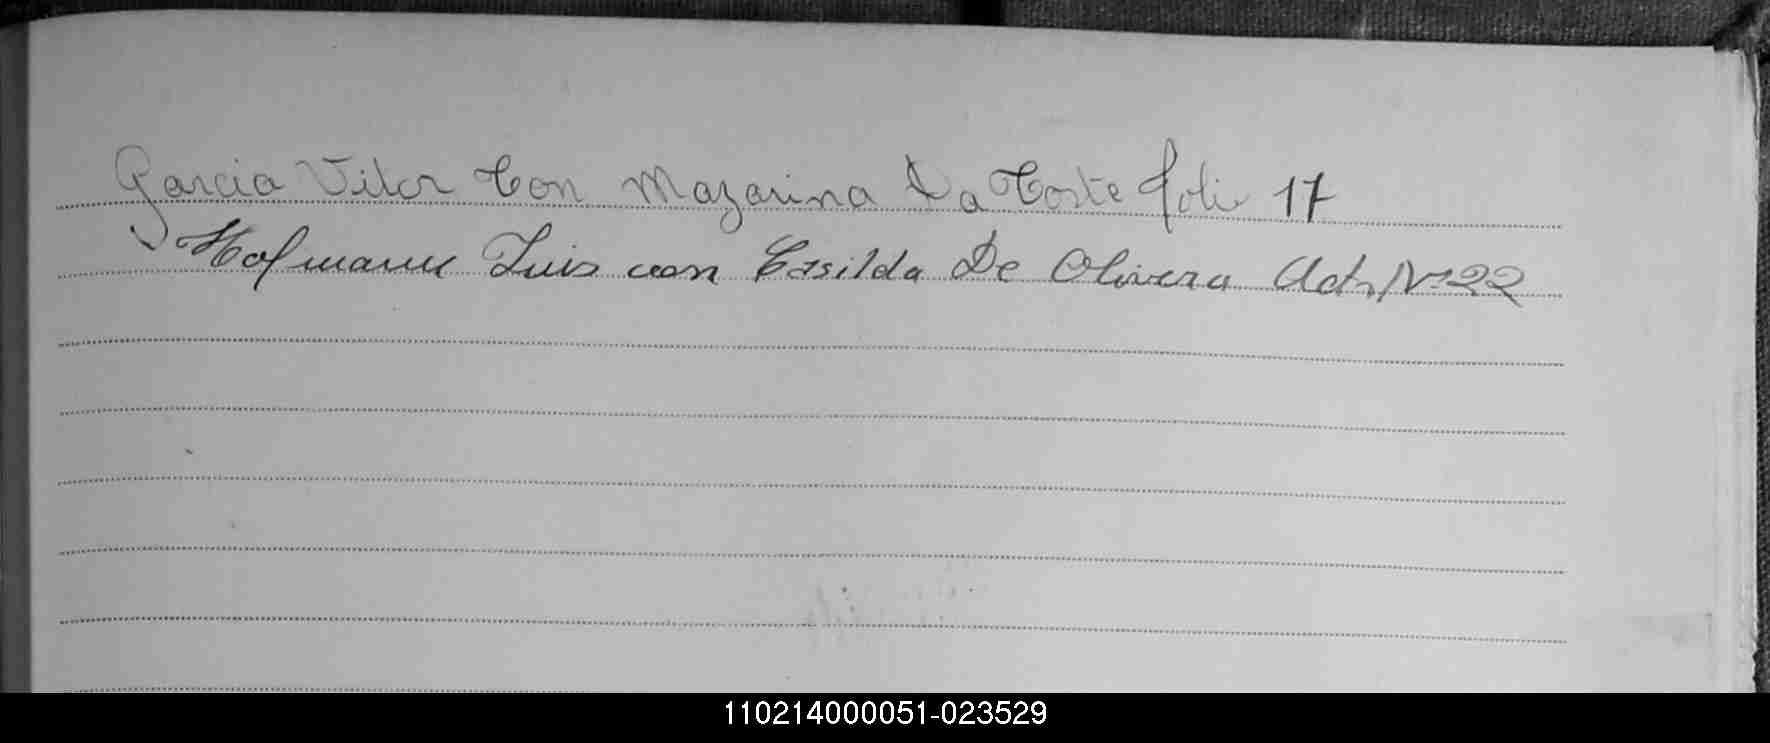 Garcia Vitor Con Mazarina Da Coste folio 17
Hofmann Luis con Casilda De Olivera Acta Nº 22
110214000051-023529